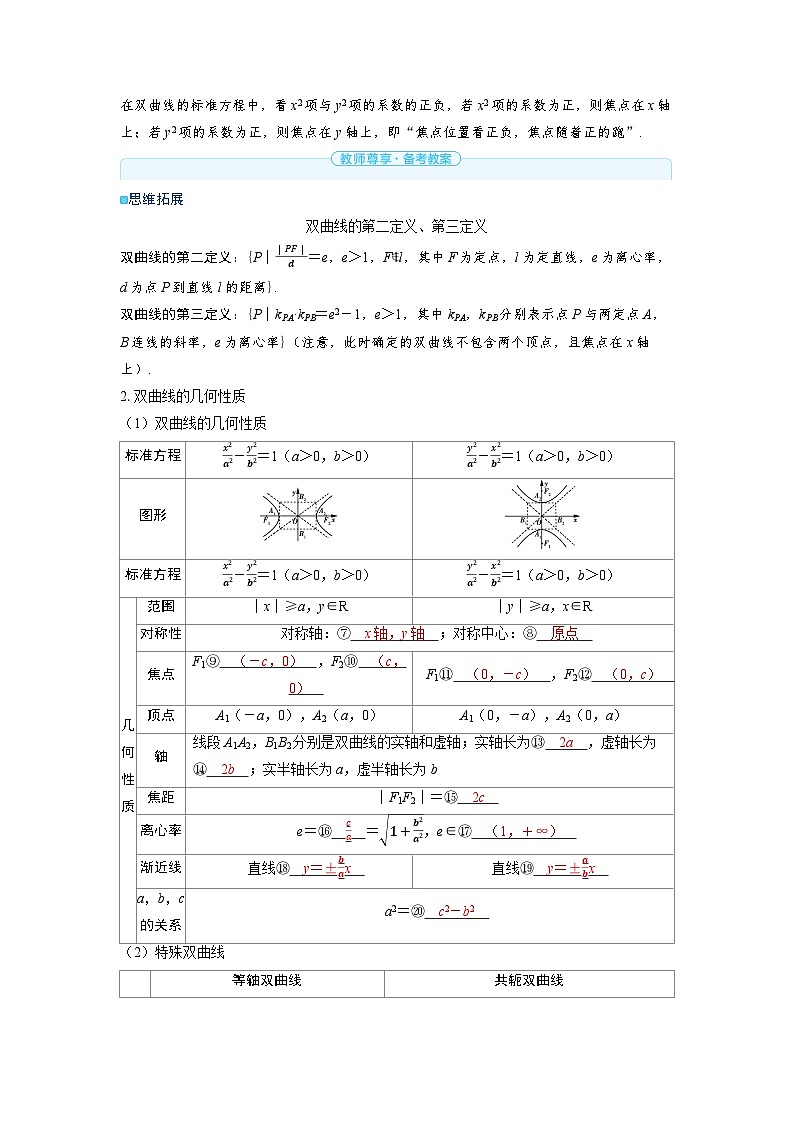 在双曲线的标准方程中，看 x2 项与 y2 项的系数的正负，若 x2 项的系数为正，则焦点在 x 轴
上；若 y2 项的系数为正，则焦点在 y 轴上，即“焦点位置看正负，焦点随着正的跑”.
教师尊享·备考教案
思维拓展
双曲线的第二定义、第三定义
双曲线的第二定义：{P｜｜PF｜/d＝e，e＞1，F∉l，其中 F 为定点，l 为定直线，e 为离心率，
d 为点 P 到直线 l 的距离}.
双曲线的第三定义：{P｜kPA·kPB＝e2－1，e＞1，其中 kPA，kPB分别表示点 P 与两定点 A，
B 连线的斜率，e 为离心率}（注意，此时确定的双曲线不包含两个顶点，且焦点在 x 轴
上）.
2. 双曲线的几何性质
（1）双曲线的几何性质
标准方程 x2/a2－y2/b2＝1（a＞0，b＞0） y2/a2－x2/b2＝1（a＞0，b＞0）
图形
标准方程 x2/a2－y2/b2＝1（a＞0，b＞0） y2/a2－x2/b2＝1（a＞0，b＞0）
几何性质
范围 ｜x｜≥a，y∈R ｜y｜≥a，x∈R
对称性 对称轴：⑦ x 轴，y 轴 ；对称中心：⑧ 原点
焦点 F1⑨ （－c，0） ，F2⑩ （c，
0） F1⑪ （0，－c） ，F2⑫ （0，c）
顶点 A1（－a，0），A2（a，0） A1（0，－a），A2（0，a）
轴 线段 A1A2，B1B2分别是双曲线的实轴和虚轴；实轴长为⑬ 2a ，虚轴长为
⑭ 2b ；实半轴长为 a，虚半轴长为 b
焦距 ｜F1F2｜＝⑮ 2c
离心率 e＝⑯ c/a ＝√(1＋b2/a2)，e∈⑰ （1，＋∞）
渐近线 直线⑱ y＝±b/a x 直线⑲ y＝±a/b x
a，b，c
的关系 a2＝⑳ c2－b2
（2）特殊双曲线
等轴双曲线 共轭双曲线